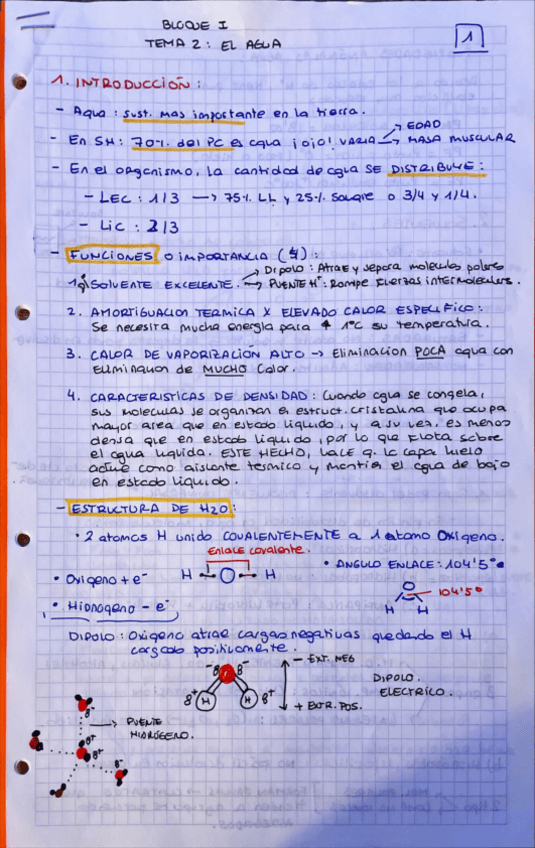 BLOQUE I
TEMA 2: EL AGUA
1
1. INTRODUCCIÓN:
- Agua: sust. mas importante en la tierra.
- En SH: 70% del PC es agua ¡ojo! VARIA → EDAD
→ MASA MUSCULAR
- En el organismo, la cantidad de agua SE DISTRIBUYE:
- LEC: 1/3 → 75% LI y 25% Sangre o 3/4 y 1/4.
- Lic: 2/3
- FUNCIONES o IMPORTANCIA (4):
1. SOLVENTE EXCELENTE. → DIPOLO: Atrae y separa moleculas polares
→ PUENTE H+: Rompe fuerzas intermoleculares.
2. AMORTIGUACION TERMICA X ELEVADO CALOR ESPECIFICO:
Se necesita mucha energia para ↑ 1°C su temperatura.
3. CALOR DE VAPORIZACIÓN ALTO → Eliminacion POCA agua con
Eliminacion de MUCHO Calor.
4. CARACTERISTICAS DE DENSIDAD: Cuando agua se congela,
sus moleculas se organizan en estruct. cristalina que ocupa
mayor area que en estado liquido, y a su vez, es menos
densa que en estado liquido, por lo que flota sobre
el agua liquida. ESTE HECHO, hace q. la capa hielo
actue como aislante termico y mantien el agua de bajo
en estado liquido.
- ESTRUCTURA DE H2O:
• 2 atomos H unido COVALENTEMENTE a 1 atomo Oxigeno.
Enlace covalente.
• Oxigeno + e-
H O H
• ANGULO ENLACE: 104'5°
• Hidrogeno - e-
O
104'5°
H H
DIPOLO: Oxigeno atrae cargas negativas quedando el H
cargado positivamente.
8- 8-
- EXT. NEG
8+ H H 8+
DIPOLO
ELECTRICO.
+ EXTR. POS.
8-
→ PUENTE
HIDRÓGENO.
8+
8+
8-
8-